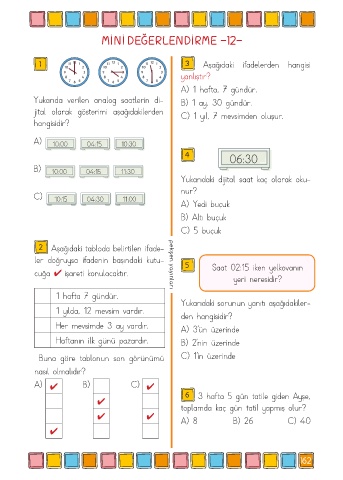 MİNİ DEĞERLENDİRME -12-
1
Yukarıda verilen analog saatlerin di-
jital olarak gösterimi aşağıdakilerden
hangisidir?
A) 10:00 04:15 10:30
B) 10:00 04:15 11:30
C) 10:15 04:30 11:00
2 Aşağıdaki tabloda belirtilen ifade-
ler doğruysa ifadenin başındaki kutu-
cuğa ✔ işareti konulacaktır.
1 hafta 7 gündür.
1 yılda, 12 mevsim vardır.
Her mevsimde 3 ay vardır.
Haftanın ilk günü pazardır.
Buna göre tablonun son görünümü
nasıl olmalıdır?
A) B) C)
pelikan yayınları
3 Aşağıdaki ifadelerden hangisi
yanlıştır?
A) 1 hafta, 7 gündür.
B) 1 ay, 30 gündür.
C) 1 yıl, 7 mevsimden oluşur.
4
06:30
Yukarıdaki dijital saat kaç olarak oku-
nur?
A) Yedi buçuk
B) Altı buçuk
C) 5 buçuk
5
Saat 02:15 iken yelkovanın
yeri neresidir?
Yukarıdaki sorunun yanıtı aşağıdakiler-
den hangisidir?
A) 3'ün üzerinde
B) 2'nin üzerinde
C) 1'in üzerinde
6 3 hafta 5 gün tatile giden Ayşe,
toplamda kaç gün tatil yapmış olur?
A) 8 B) 26 C) 40
162